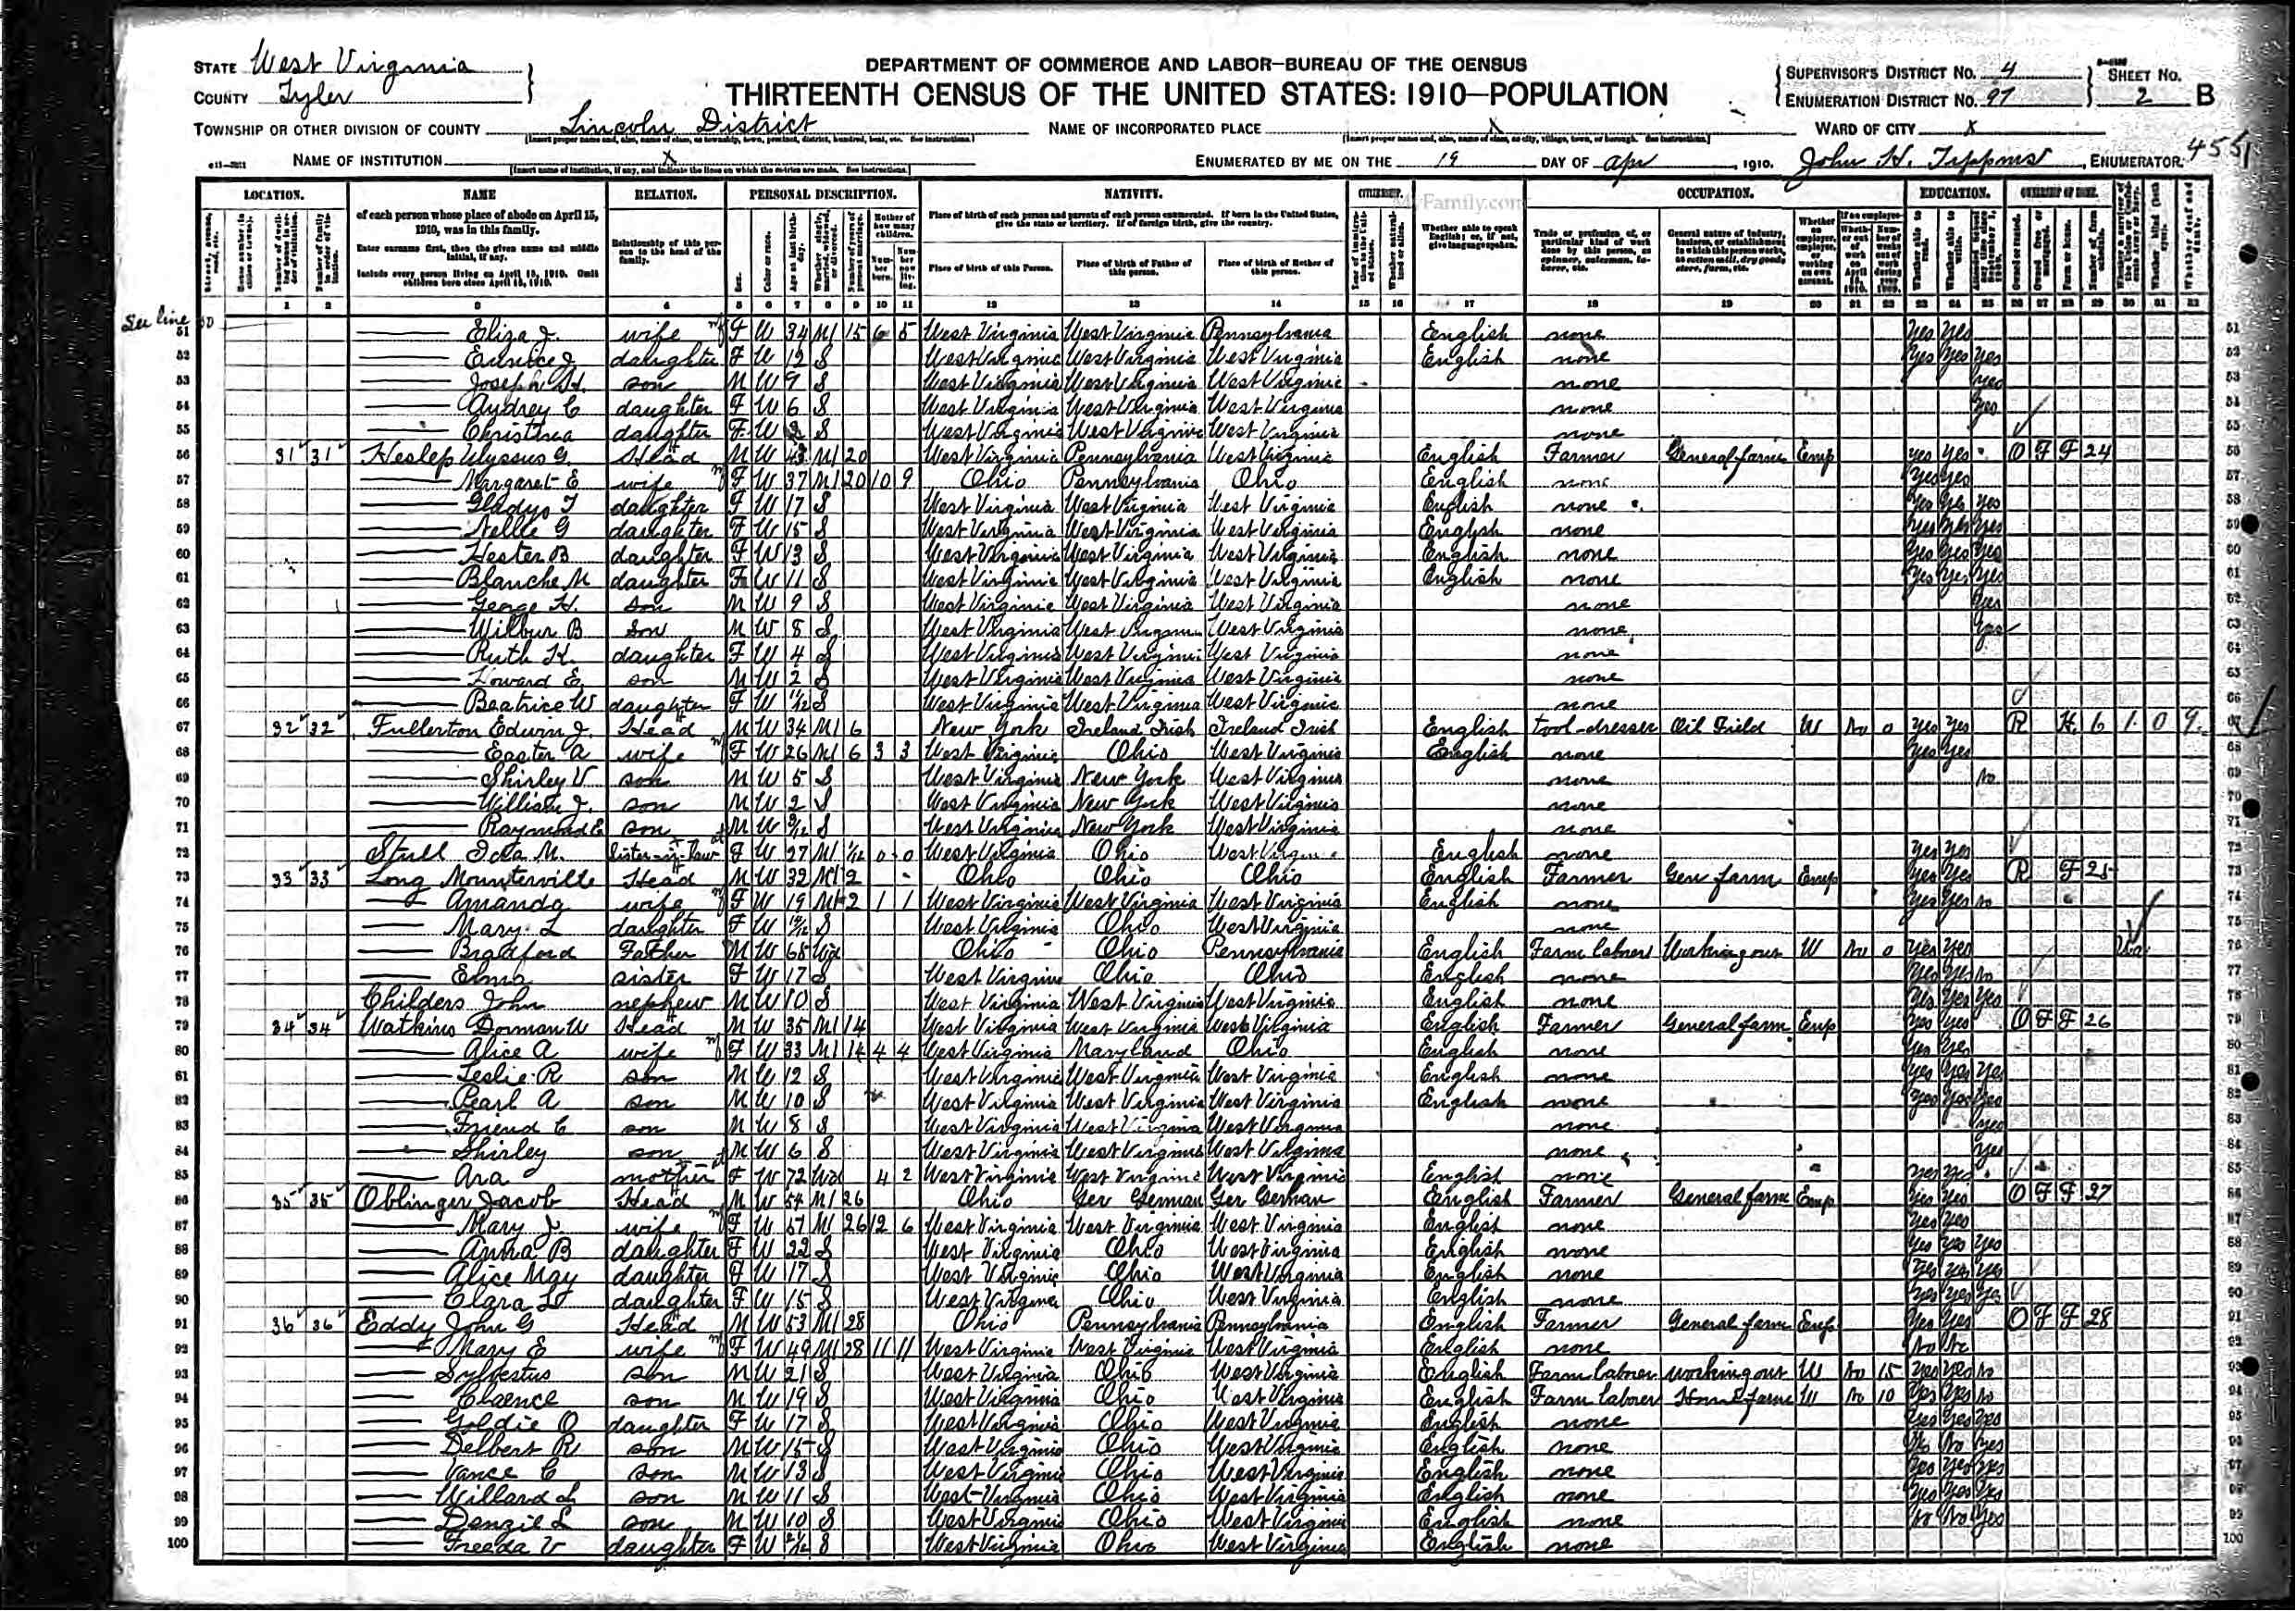 STATE West Virginia
COUNTY Tyler
DEPARTMENT OF COMMERCE AND LABOR—BUREAU OF THE CENSUS
THIRTEENTH CENSUS OF THE UNITED STATES: 1910—POPULATION
SUPERVISOR'S DISTRICT No. 4
ENUMERATION DISTRICT No. 97
SHEET No. 2 B
TOWNSHIP OR OTHER DIVISION OF COUNTY Lincoln District
NAME OF INCORPORATED PLACE X
WARD OF CITY X
NAME OF INSTITUTION X
ENUMERATED BY ME ON THE 19 DAY OF Apr, 1910. John H. Tippins, ENUMERATOR. 455
LOCATION. NAME RELATION. PERSONAL DESCRIPTION. NATIVITY. CITIZENSHIP. OCCUPATION. EDUCATION. OWNERSHIP OF HOME.
MyFamily.com
of each person whose place of abode on April 15, 1910, was in this family.
Enter surname first, then the given name and middle initial, if any.
Include every person living on April 15, 1910. Omit children born since April 15, 1910.
Relationship of this person to the head of the family.
Place of birth of each person and parents of each person enumerated. If born in the United States, give the state or territory. If of foreign birth, give the country.
Place of birth of this Person. Place of birth of Father of this person. Place of birth of Mother of this person.
1 2 3 4 5 6 7 8 9 10 11 12 13 14 15 16 17 18 19 20 21 22 23 24 25 26 27 28 29 30 31 32
See line 50
51 Eliza J. wife F W 34 M1 15 6 5 West Virginia West Virginia Pennsylvania English none Yes Yes 51
52 Eunice J daughter F W 12 S West Virginia West Virginia West Virginia English none Yes Yes Yes 52
53 Joseph H. son M W 9 S West Virginia West Virginia West Virginia none Yes 53
54 Audrey C daughter F W 6 S West Virginia West Virginia West Virginia none Yes 54
55 Christina daughter F W 2 S West Virginia West Virginia West Virginia none 55
56 31 31 Heslep Ulyssus G. Head M W 43 M1 20 West Virginia Pennsylvania West Virginia English Farmer General farm Emp yes yes O F F 24 56
57 Margaret E wife F W 37 M1 20 10 9 Ohio Pennsylvania Ohio English none Yes Yes 57
58 Gladys F daughter F W 17 S West Virginia West Virginia West Virginia English none Yes Yes Yes 58
59 Nelle G daughter F W 15 S West Virginia West Virginia West Virginia English none Yes Yes Yes 59
60 Hester B daughter F W 13 S West Virginia West Virginia West Virginia English none Yes Yes Yes 60
61 Blanche M daughter F W 11 S West Virginia West Virginia West Virginia English none Yes Yes Yes 61
62 George H. son M W 9 S West Virginia West Virginia West Virginia none Yes 62
63 Wilbur B son M W 8 S West Virginia West Virginia West Virginia none Yes 63
64 Ruth K. daughter F W 4 S West Virginia West Virginia West Virginia none 64
65 Howard E. son M W 2 S West Virginia West Virginia West Virginia none 65
66 Beatrice W daughter F W 11/12 S West Virginia West Virginia West Virginia none 66
67 32 32 Fullerton Edwin J. Head M W 34 M1 6 New York Ireland Irish Ireland Irish English tool-dresser Oil Field W No 0 yes yes R H 6 1 0 9 67
68 Easter A wife F W 26 M1 6 3 3 West Virginia Ohio West Virginia English none Yes Yes 68
69 Shirley V son M W 5 S West Virginia New York West Virginia none No 69
70 William J. son M W 2 S West Virginia New York West Virginia none 70
71 Raymond E son M W 9/12 S West Virginia New York West Virginia none 71
72 Stull Icea M. Sister-in-law F W 27 M1 1/12 0 0 West Virginia Ohio West Virginia English none Yes Yes 72
73 33 33 Long Mounterville Head M W 32 M1 2 Ohio Ohio Ohio English Farmer Gen farm Emp Yes Yes R F 25 73
74 Amanda wife F W 19 M1 2 1 1 West Virginia West Virginia West Virginia English none Yes Yes no 74
75 Mary L daughter F W 10/12 S West Virginia Ohio West Virginia none 75
76 Bradford Father M W 65 Wd Ohio Ohio Pennsylvania English Farm laborer Working out W No 0 Yes Yes 76
77 Elma sister F W 17 S West Virginia Ohio Ohio English none Yes Yes No 77
78 Childers John nephew M W 10 S West Virginia West Virginia West Virginia English none Yes Yes Yes 78
79 34 34 Watkins Dorman W Head M W 35 M1 14 West Virginia West Virginia West Virginia English Farmer General farm Emp Yes yes O F F 26 79
80 Alice A wife F W 33 M1 14 4 4 West Virginia Maryland Ohio English none Yes Yes 80
81 Leslie R son M W 12 S West Virginia West Virginia West Virginia English none Yes Yes Yes 81
82 Pearl A son M W 10 S West Virginia West Virginia West Virginia English none Yes Yes Yes 82
83 Friend C son M W 8 S West Virginia West Virginia West Virginia none Yes 83
84 Shirley son M W 6 S West Virginia West Virginia West Virginia none Yes 84
85 Ara mother F W 72 Wd 4 2 West Virginia West Virginia West Virginia English none yes yes 85
86 35 35 Oblinger Jacob Head M W 54 M1 26 Ohio Ger German Ger German English Farmer General farm Emp Yes Yes O F F 27 86
87 Mary J wife F W 57 M1 26 12 6 West Virginia West Virginia West Virginia English none Yes Yes 87
88 Anna B daughter F W 22 S West Virginia Ohio West Virginia English none Yes yes Yes 88
89 Alice May daughter F W 17 S West Virginia Ohio West Virginia English none Yes yes Yes 89
90 Clara L daughter F W 15 S West Virginia Ohio West Virginia English none Yes Yes Yes 90
91 36 36 Eddy John G Head M W 53 M1 28 Ohio Pennsylvania Pennsylvania English Farmer General farm Emp Yes Yes O F F 28 91
92 Mary E wife F W 49 M1 28 11 11 West Virginia West Virginia West Virginia English none No No 92
93 Sylvestus son M W 21 S West Virginia Ohio West Virginia English Farm laborer working out W No 15 Yes Yes No 93
94 Claence son M W 19 S West Virginia Ohio West Virginia English Farm laborer Home farm W No 10 Yes Yes No 94
95 Goldie O daughter F W 17 S West Virginia Ohio West Virginia English none Yes Yes Yes 95
96 Delbert R son M W 15 S West Virginia Ohio West Virginia English none No No Yes 96
97 Vance C son M W 13 S West Virginia Ohio West Virginia English none Yes Yes Yes 97
98 Willard L son M W 11 S West Virginia Ohio West Virginia English none Yes Yes Yes 98
99 Denzil L son M W 10 S West Virginia Ohio West Virginia English none No No Yes 99
100 Freeda V daughter F W 2/12 S West Virginia Ohio West Virginia English none 100